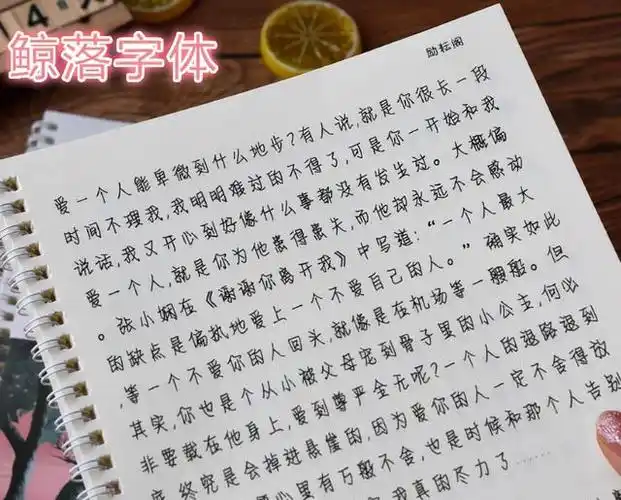 鲸落字体
励耘阁
爱一个人能卑微到什么地步?有人说,就是你很长一段
时间不理我,我明明难过的不得了,可是你一开始和我
说话,我又开心到好像什么事都没有发生过。大概偏
爱一个人,就是你为他患得患失,而他却永远不会感动
。张小娴在《谢谢你离开我》中写道:“一个人最大
的缺点是偏执地爱上一个不爱自己的人。”确实如此
,等一个不爱你的人回头,就像是在机场等一艘船。但
其实,你也是个从小被父母宠到骨子里的小公主,何必
非要栽在他身上,爱到尊严全无呢?一个人的退路退到
终究是会掉进悬崖的,因为爱你的人一定不舍得放
心里有万般不舍,也是时候和那个人告别
我真的尽力了……